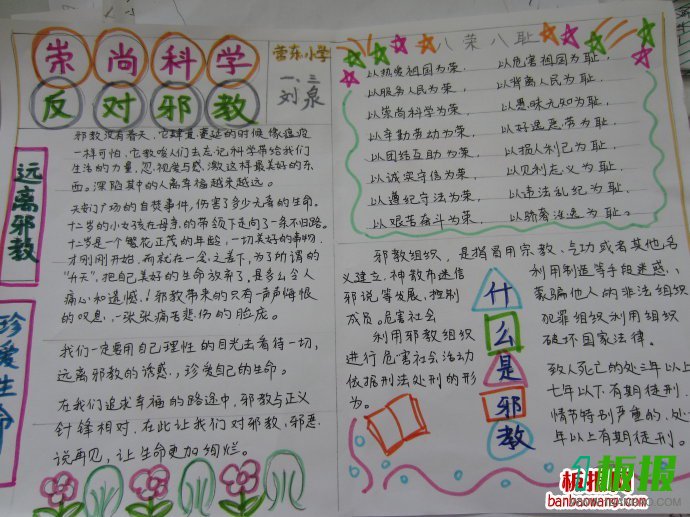 崇尚科学
反对邪教
营东小学
一、三
刘泉
远离邪教
珍爱生命
邪教没有春天,它肆意蔓延的时候像瘟疫
一样可怕,它教唆人们去忘记科学带给我们
生活的力量,忽视爱与感激这样最美好的东
西。深陷其中的人离幸福越来越远。
天安门广场的自焚事件,伤害了多少无辜的生命。
十二岁的小女孩在母亲的带领下走向了一条不归路。
十二岁是一个繁花正茂的年龄,一切美好的事物,
才刚刚开始,而就在一念之差下,为了所谓的
“升天”,把自己美好的生命放弃了,是多么令人
痛心和遗憾!邪教带来的只有一声声悔恨
的叹息,一张张痛苦悲伤的脸庞。
我们一定要用自己理性的目光去看待一切,
远离邪教的诱惑,珍爱自己的生命。
在我们追求幸福的路途中,邪教与正义
针锋相对,在此让我们对邪教、邪恶
说再见,让生命更加绚烂。
八荣八耻
以热爱祖国为荣、以危害祖国为耻,
以服务人民为荣、以背离人民为耻,
以崇尚科学为荣、以愚昧无知为耻,
以辛勤劳动为荣、以好逸恶劳为耻,
以团结互助为荣、以损人利己为耻,
以诚实守信为荣、以见利忘义为耻,
以遵纪守法为荣、以违法乱纪为耻,
以艰苦奋斗为荣、以骄奢淫逸为耻。
什么是邪教
邪教组织,是指冒用宗教、气功或者其他名
义建立,神教布迷信
邪说等发展、控制
成员。危害社会
利用邪教组织
进行危害社会活动
依据刑法处刑的形
为。
利用制造等手段迷惑、
蒙骗他人的非法组织
犯罪组织利用组织
破坏国家法律。
致人死亡的处三年以上
七年以下有期徒刑。
情节特别严重的,处
年以上有期徒刑。
板报
板报网
banbaowang.com